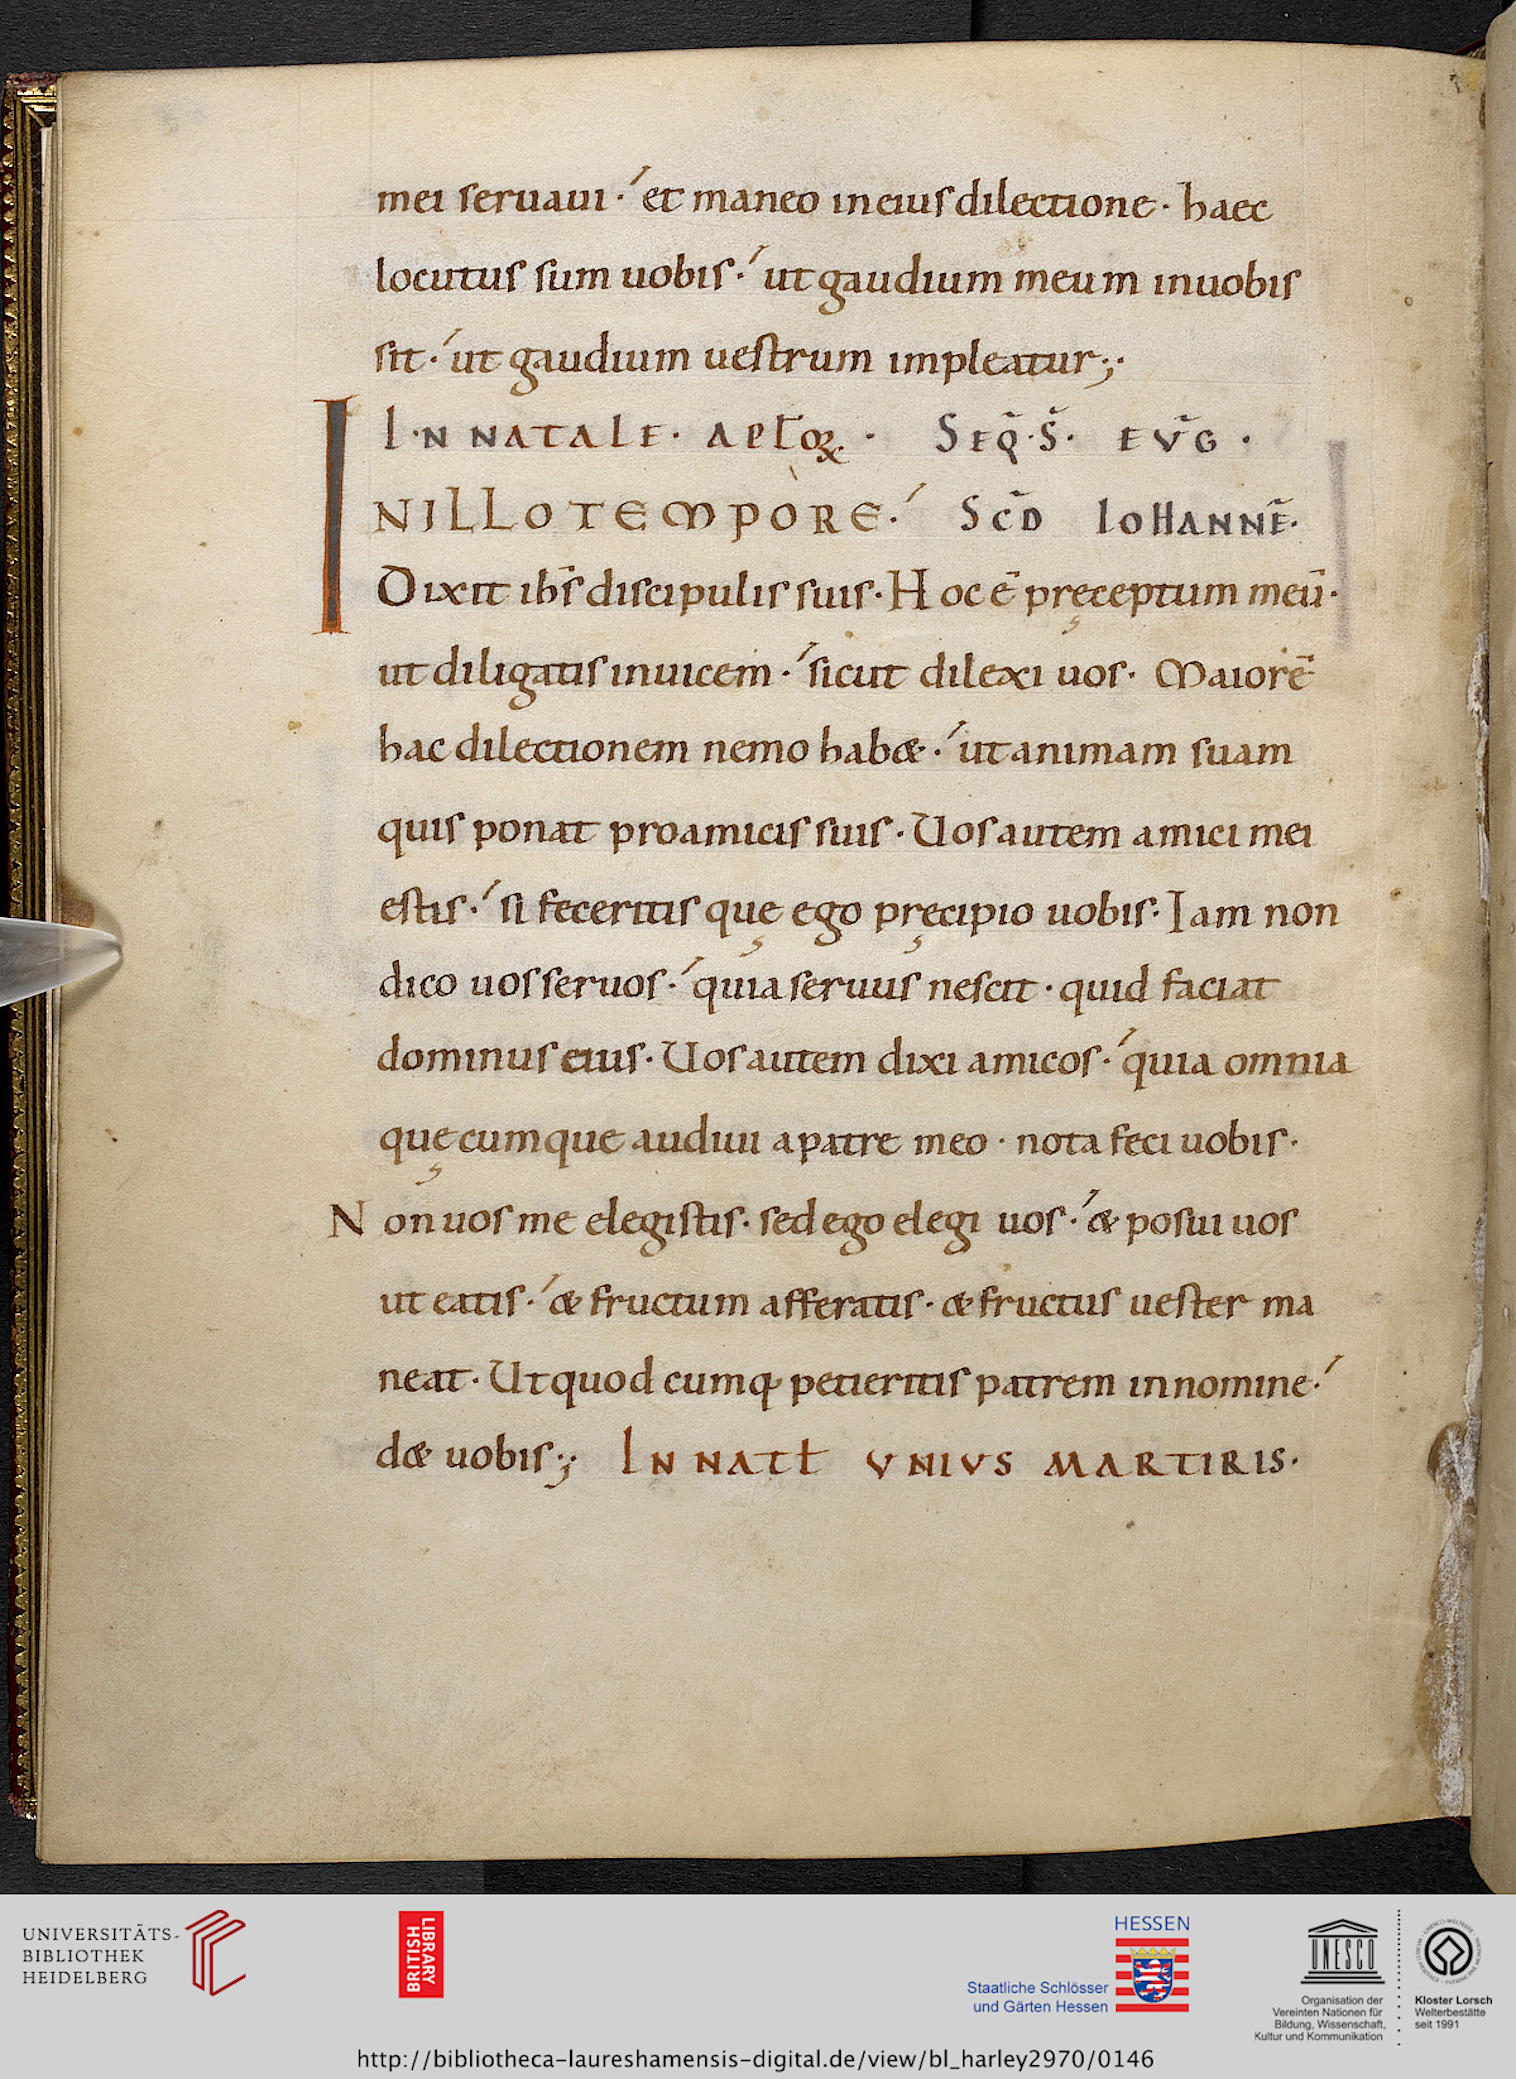 mei seruaui ·́ et maneo in eius dilectione · haec
locutus sum uobis ·́ ut gaudium meum inuobis
sit ·́ ut gaudium uestrum impleatur ;·
I·N NATALE · APŁOꝜ · SEQ̃ · S̃ · EṼG ·
INILLO TEMPORE ·́ SCD̃ IOHANNẼ ·
Dixit ih̅s discipulis suis · Hoc ē pręceptum meū ·
ut diligatis inuicem ·́ sicut dilexi uos · Maiorē
hac dilectionem nemo habæ ·́ ut animam suam
quis ponat proamicis suis · Uos autem amici mei
estis ·́ si feceritis quę ego pręcipio uobis · Iam non
dico uos seruos ·́ quia seruus nescit · quid faciat
dominus eius · Uos autem dixi amicos ·́ quia omnia
quęcumque audiui apatre meo · nota feci uobis ·
Non uos me elegistis · sed ego elegi uos ·́ & posui uos
ut eatis ·́ & fructum afferatis · & fructus uester ma
neat · Ut quod cumq· petieritis patrem innomine ·́
d& uobis ;· IN NATŁ UNIUS MARTIRIS ·
UNIVERSITÄTS-
BIBLIOTHEK
HEIDELBERG
BRITISH
LIBRARY
HESSEN
Staatliche Schlösser
und Gärten Hessen
UNESCO
Organisation der
Vereinten Nationen für
Bildung, Wissenschaft,
Kultur und Kommunikation
Kloster Lorsch
Welterbestätte
seit 1991
http://bibliotheca-laureshamensis-digital.de/view/bl_harley2970/0146